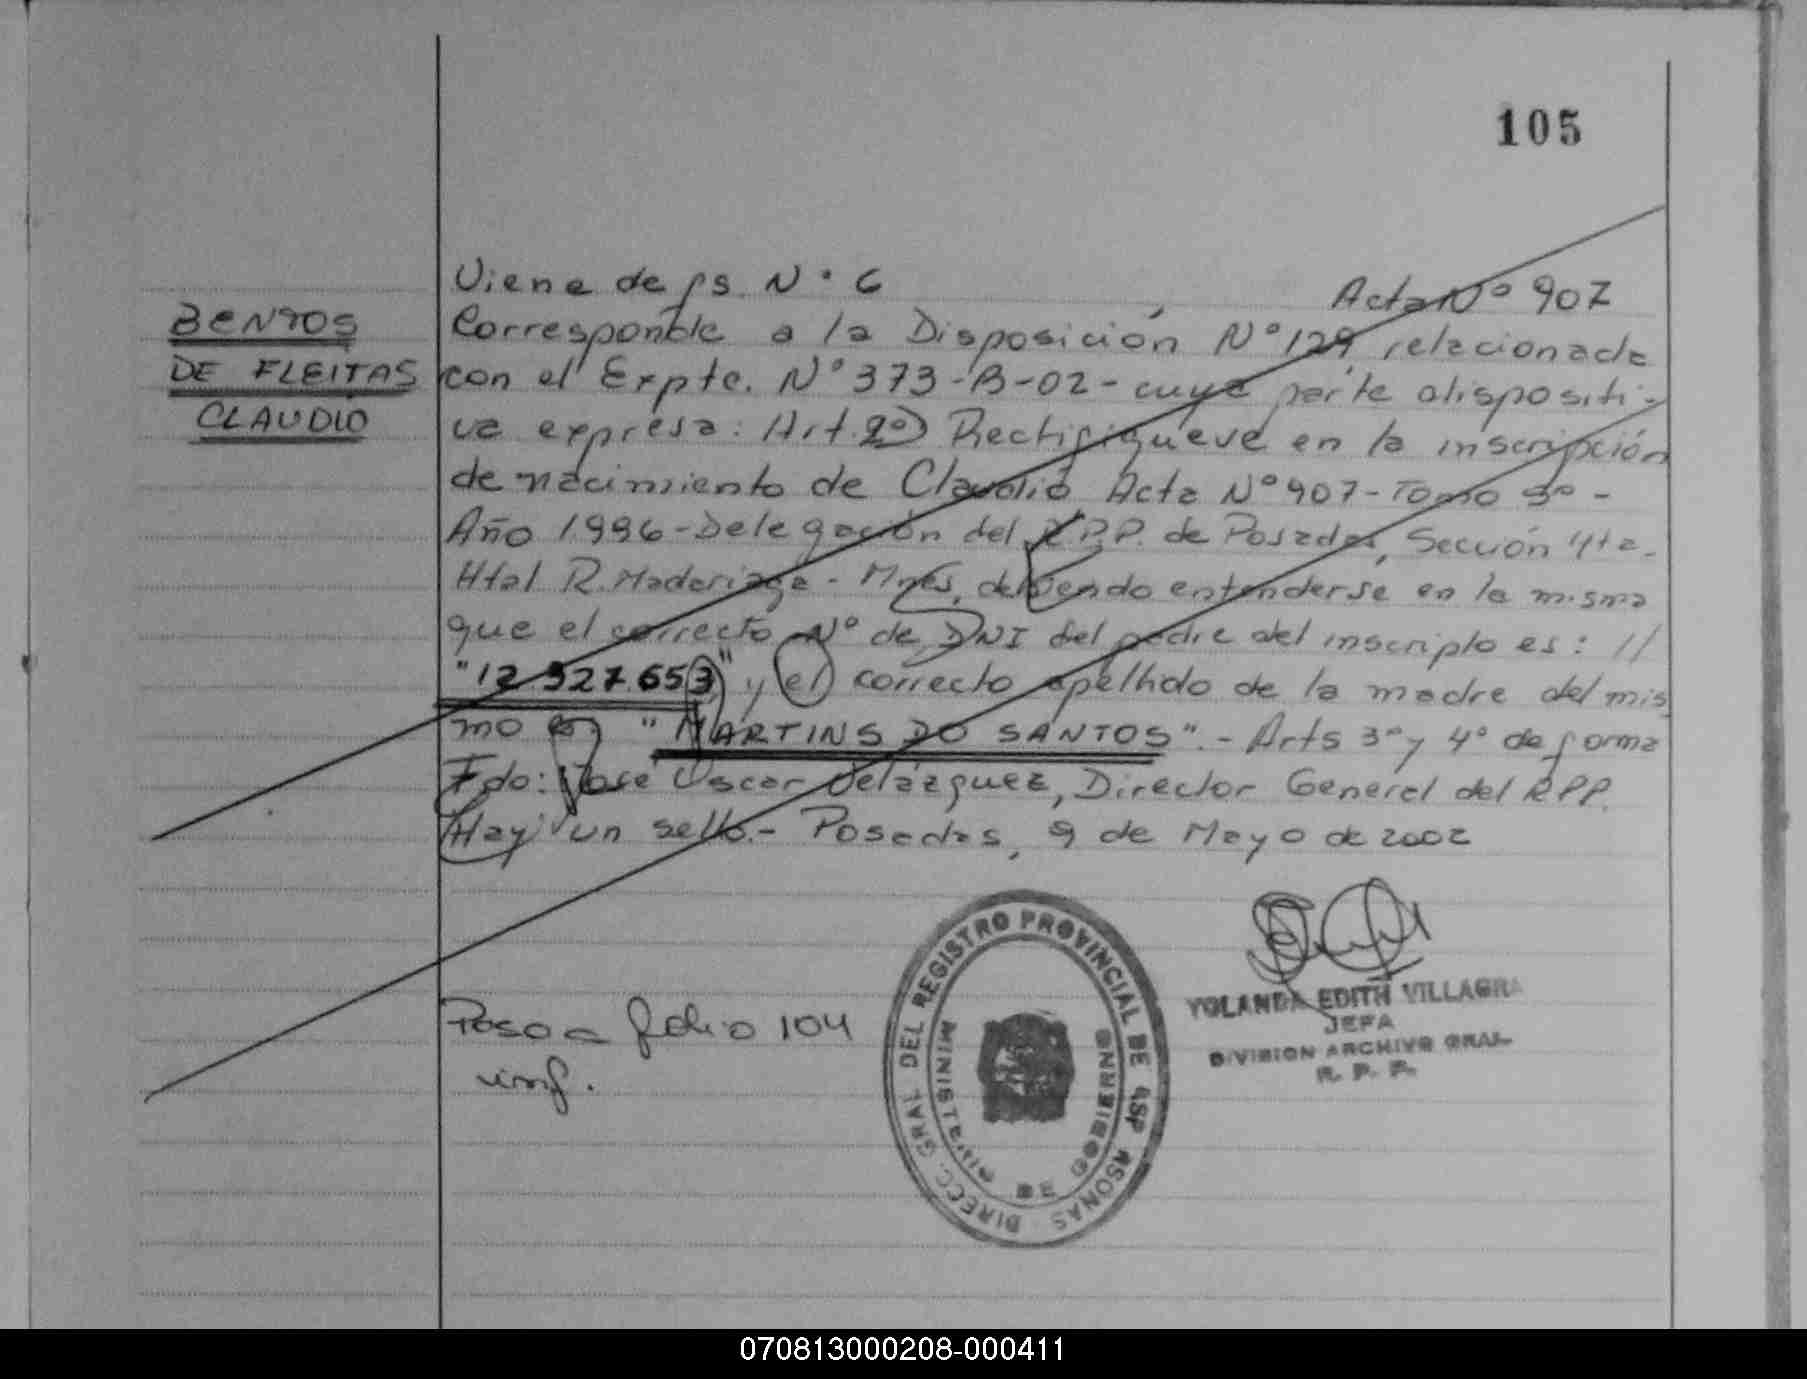 105
Viene de fs. Nº 6
Acta Nº 907
BENTOS
DE FLEITAS
CLAUDIO
Corresponde a la Disposición Nº 129 relacionada
con el Expte. Nº 373-B-02- cuya parte dispositi-
va expresa: Art. 2º) Rectifiqueve en la inscripción
de nacimiento de Claudio Acta Nº 907- Tomo 3º -
Año 1996 - Delegación del R.P.P. de Posadas, Sección 4ta.
Htal R. Madariaga - Mnes, debiendo entenderse en la misma
que el correcto Nº de DNI del padre del inscripto es: //
"12.927.653" y el correcto apellido de la madre del mis
mo es "MARTINS DO SANTOS".- Arts 3º y 4º de forma
Fdo: José Oscar Velázquez, Director General del RPP.
Hay un sello.- Posadas, 9 de Mayo de 2002
Paso a folio 104
inf.
DIRECC. GRAL DEL REGISTRO PROVINCIAL DE
MINISTERIO DE GOBIERNO
YOLANDA EDITH VILLAGRA
JEFA
DIVISION ARCHIVO GRAL.
R. P. P.
070813000208-000411